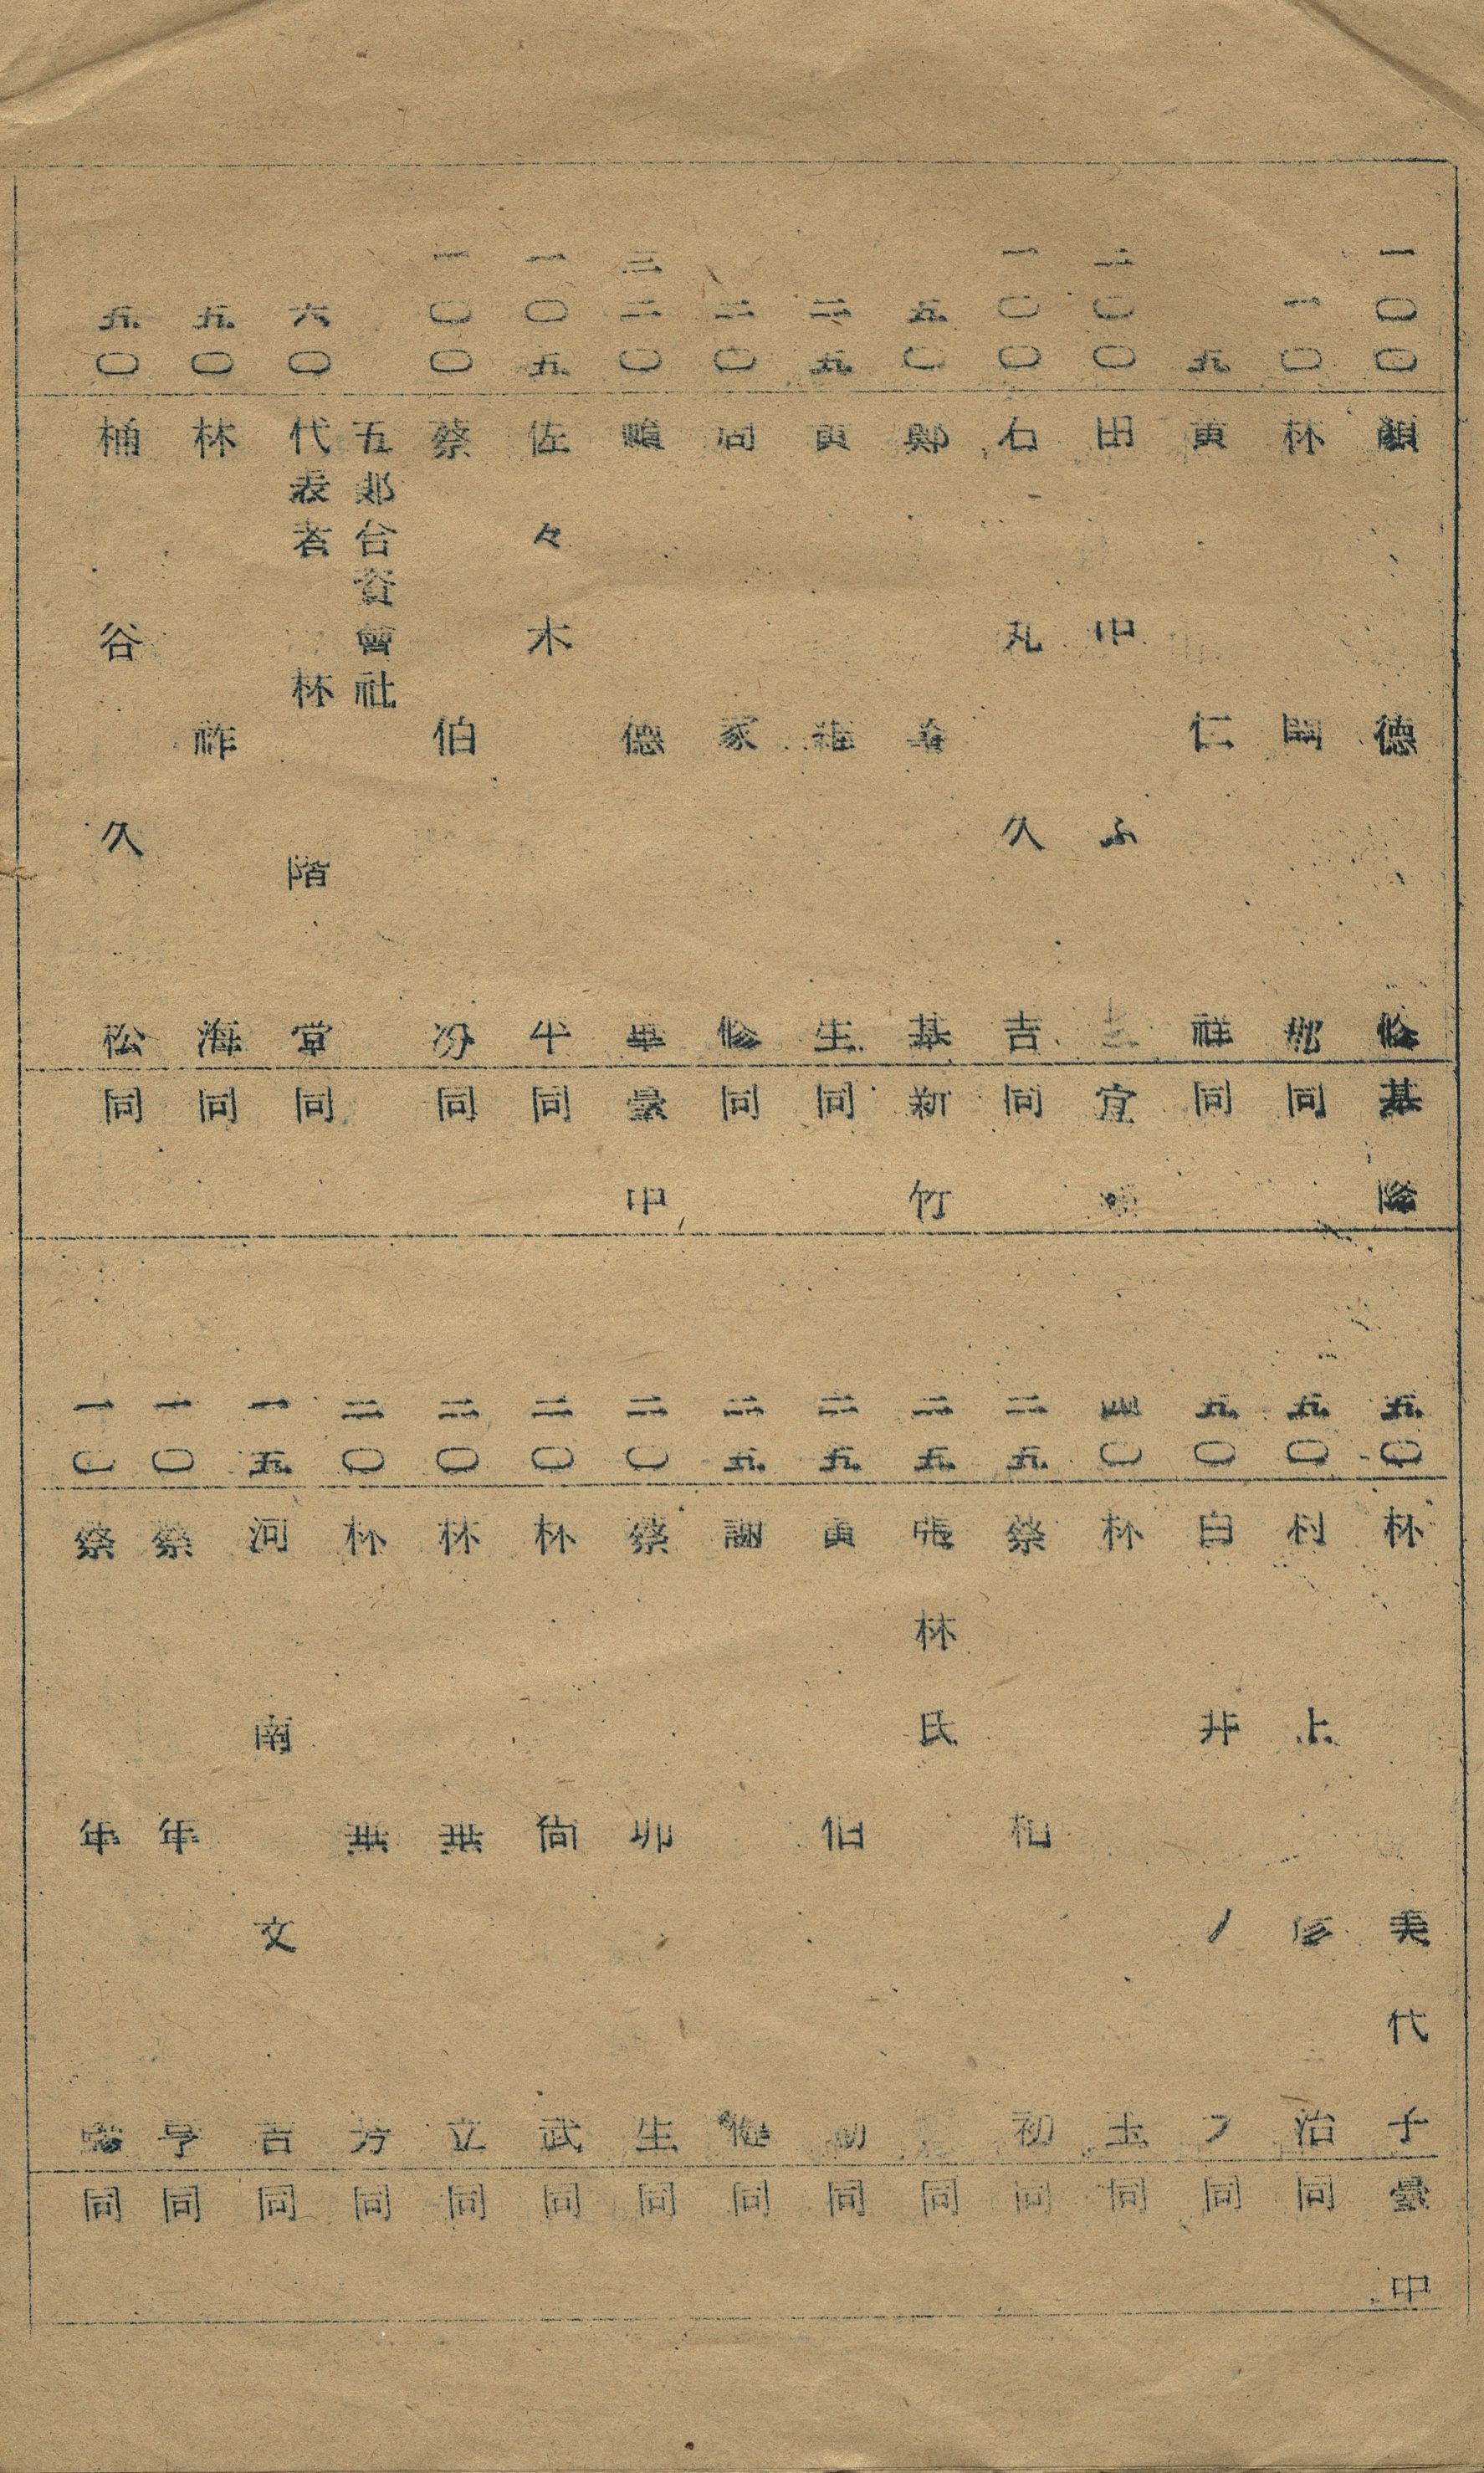 一〇〇 顏德修 基隆
一〇 林 同
五 黃仁祥 同
二〇〇 田中ふ 宜
一〇〇 石丸久吉 同
五〇 鄭 基 新竹
二五 黃 生 同
二〇 周家修 同
三二〇 賴德華 臺中
一〇五 佐々木 牛 同
一〇〇 蔡伯汾 同
五郎合資會社
六〇 代表者林階堂 同
五〇 林祚海 同
五〇 桶谷久松 同
五〇 林美代子 臺中
五〇 村上彦治 同
五〇 白井ノフ 同
四〇 林玉 同
二五 蔡和初 同
二五 張林氏 同
二五 黃伯 同
二五 同
二〇 蔡卯生 同
二〇 林尙武 同
二〇 林垂立 同
二〇 林垂芳 同
一五 河南文吉 同
一〇 蔡年亨 同
一〇 蔡年 同